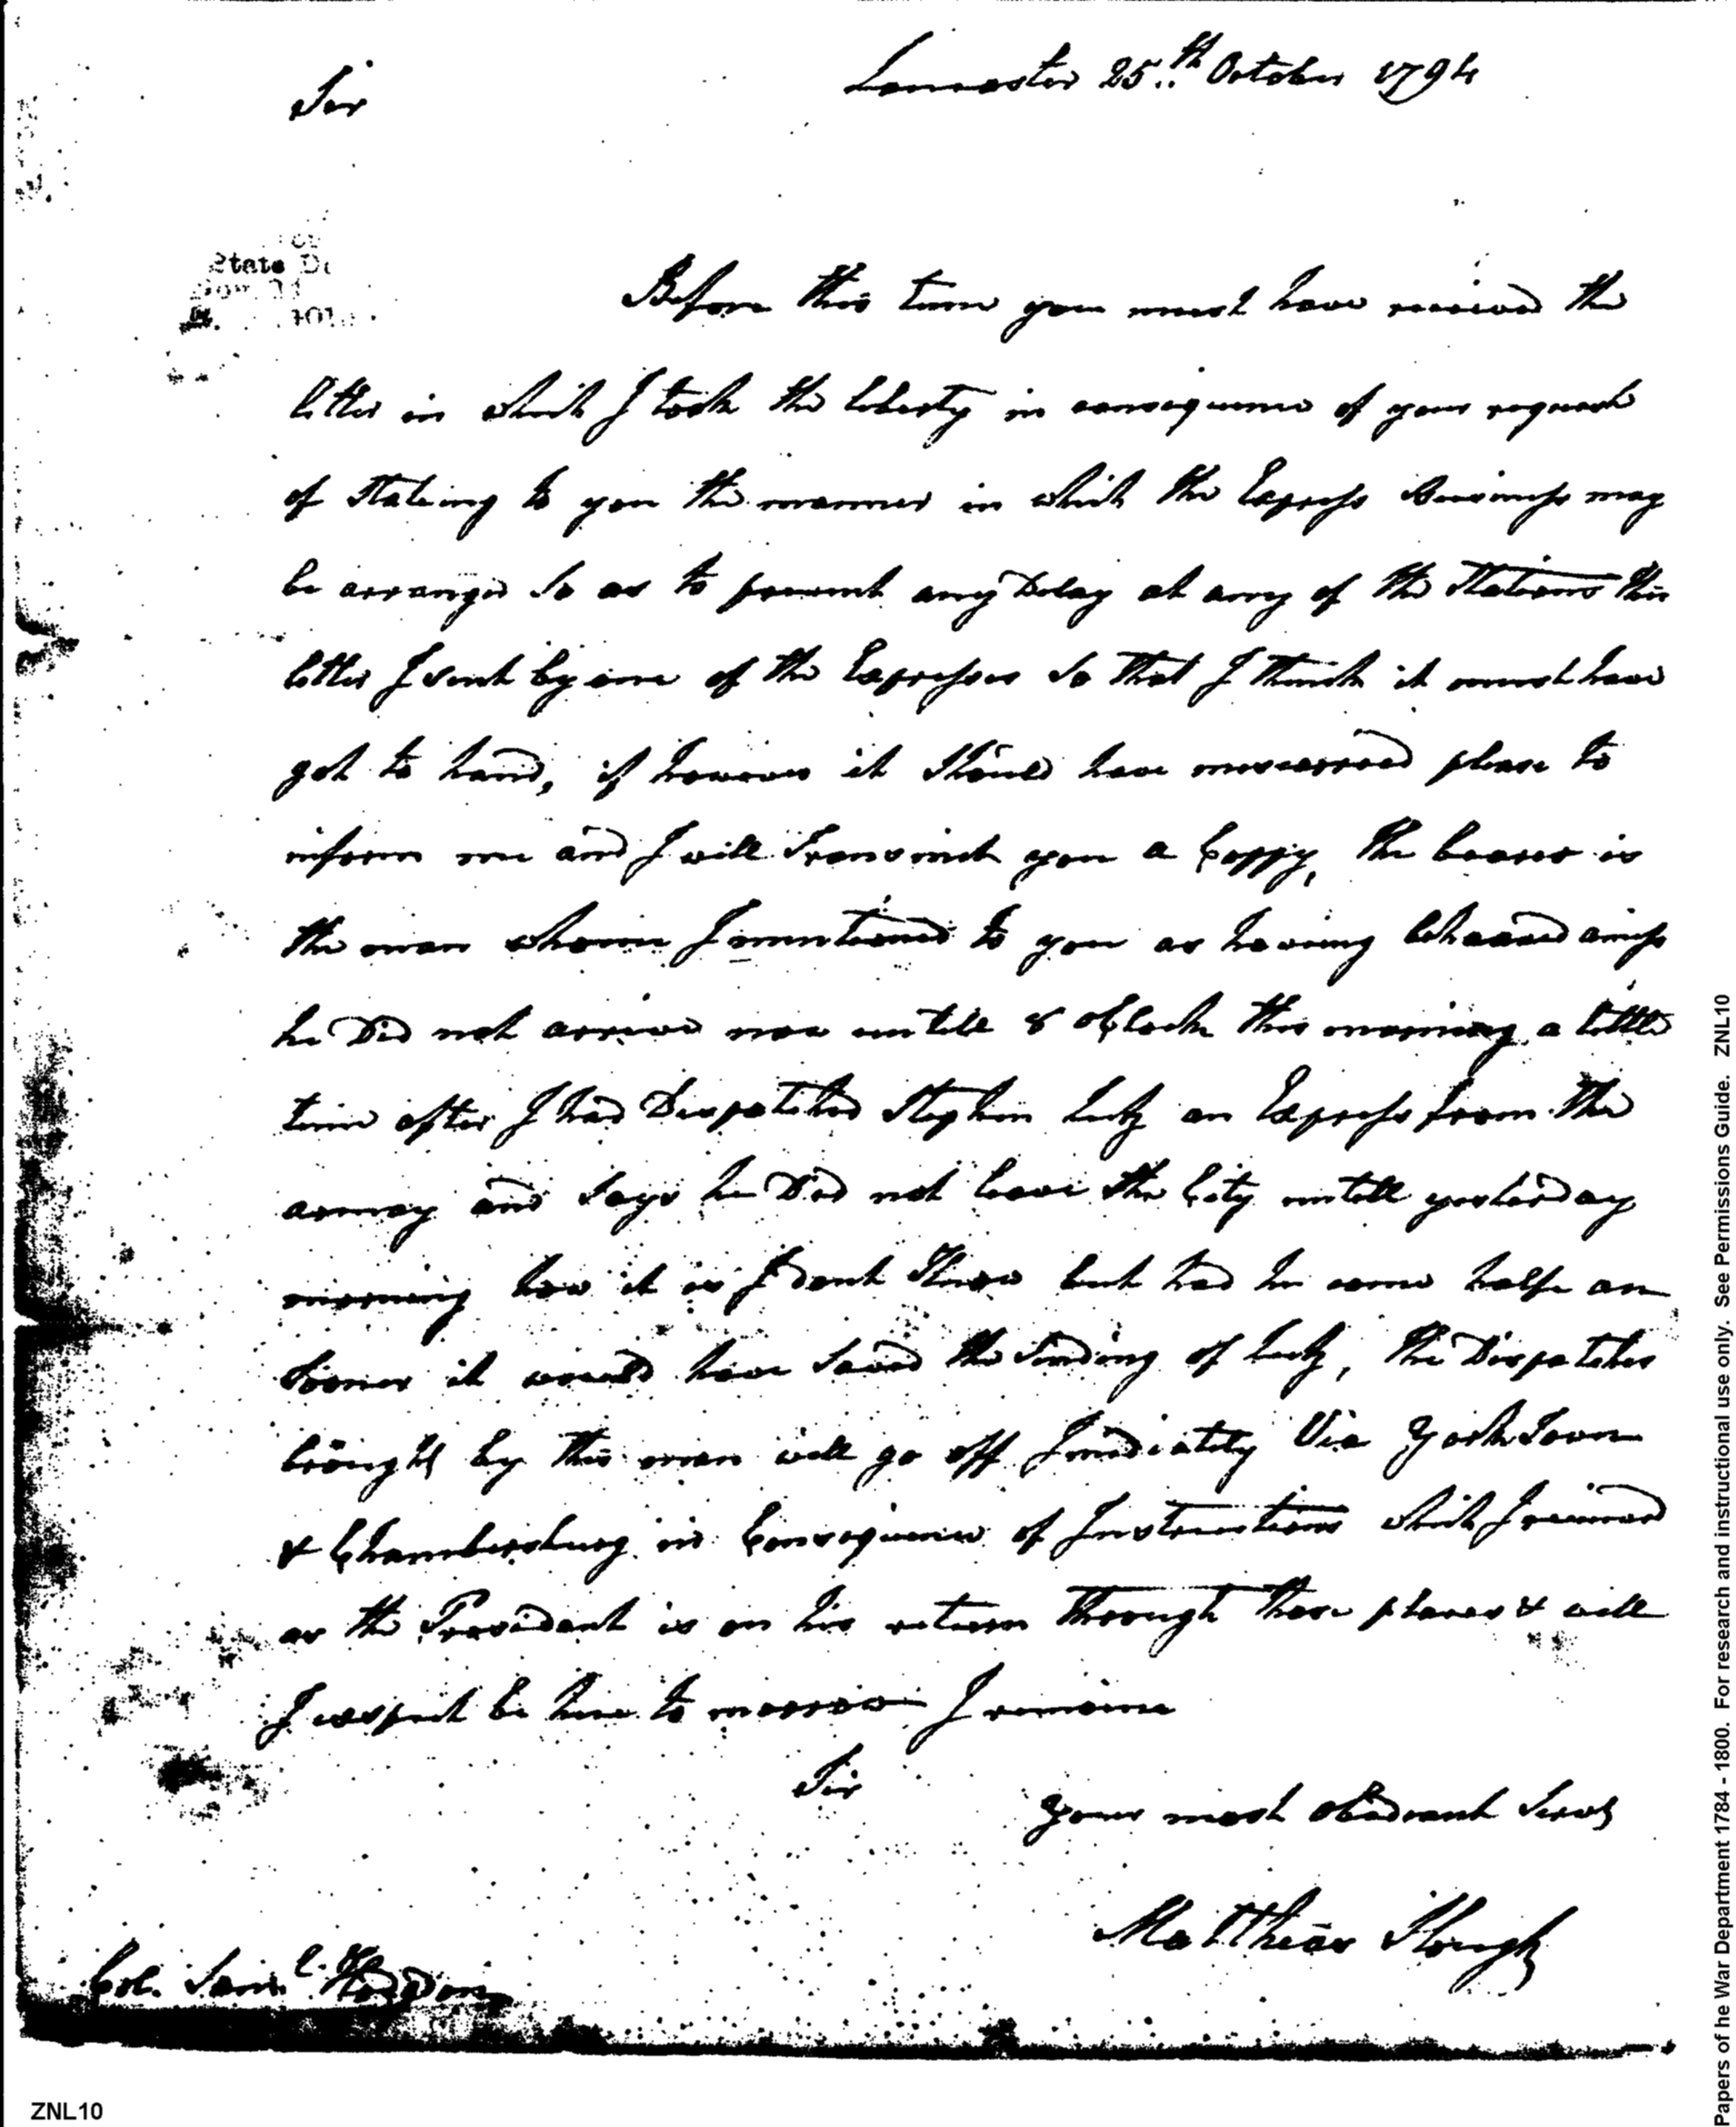 Lancaster 25th October 1794
Sir
State D
Before this time you must have received the
letter in which I took the liberty in consequence of your request
of Stateing to you the manner in which the Express Business may
be arranged So as to prevent any Delay at any of the Stations this
letter I sent by one of the Expresses So that I think it must have
got to hand, if however it Should have miscarried please to
inform me and I will Transmit you a Coppy, the bearer is
the man whome I mentioned to you as having behaaved amiss
he Did not arrive now untill 8 oClock this morning a little
time after I had Dispatched Stephen Lutz an Express from the
army and Says he Did not leave the City untill yesterday
morning how it is I dont Know but had he come halfe an
Sooner it would have Saved the Sending of Lutz, the Dispatches
brought by this man will go off Imediately Via York Town
& Chambersburg in Consequence of Instructions which I recieved
as the President is on his return Through those places & will
I exspect be here to morrow I remaine
Sir
Your most obedient Servt
Matthias Slough
Col. Saml. Hodgdon
ZNL10
Papers of he War Department 1784 - 1800. For research and instructional use only. See Permissions Guide. ZNL10